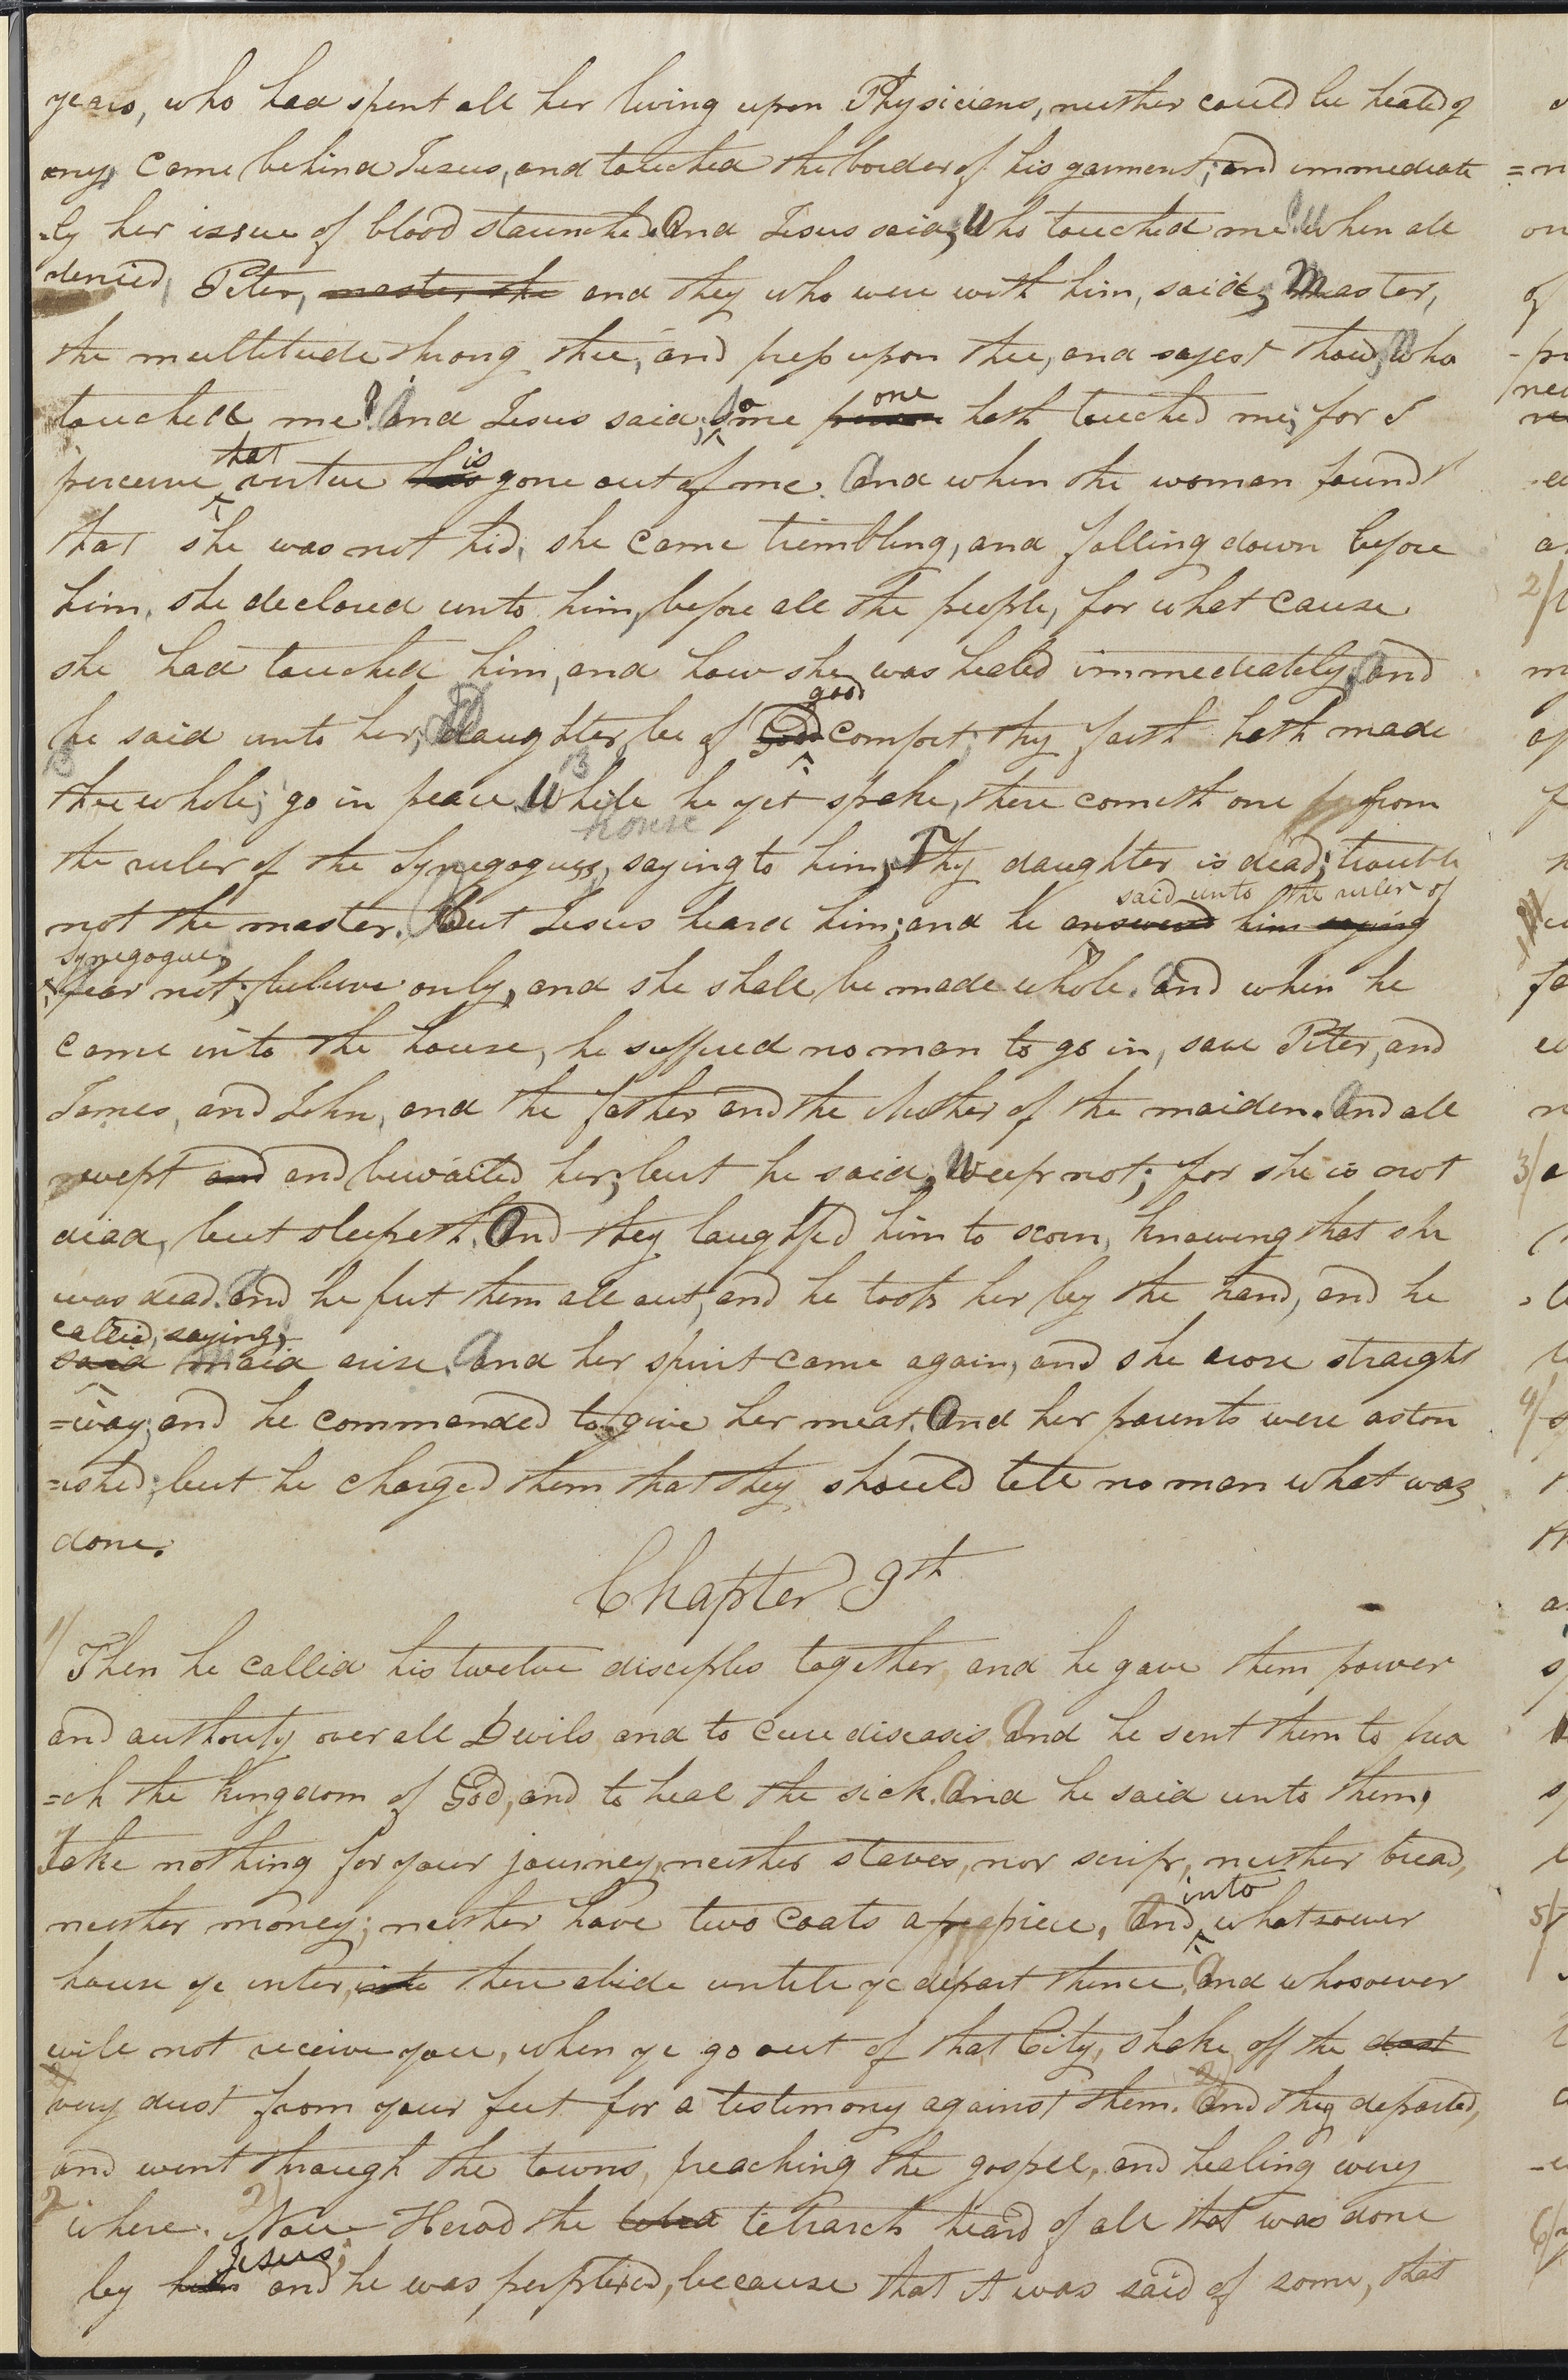 years, who had spent all her living upon Physicians, neither could be healed of
any, came behind Jesus, and touched the border of his garment; and immediate
=ly her issue of blood staunched. And Jesus said, Who touched me? When all
denied, Peter, master, the and they who were with him, said, Master,
the multitude throng thee, and press upon thee, and sayest thou, who
touched me? And Jesus said, some person one hath touched me; for I
perceive that virtue has is gone out of me. And when the woman found
that she was not hid, she came trembling, and falling down before
him, she declared unto him, before all the people, for what cause
she had touched him, and how she was healed immediately, And
he said unto her, Daughter, be of God good comfort; thy faith hath made
13
thee whole; go in peace. 13 While he yet spake, there cometh one from
the ruler of the Synegogues, house saying to him, Thy daughter is dead; trouble
not the master. But Jesus heard him; and he answered said unto the ruler of him saying
synegogue,
fear not; believe only, and she shall be made whole. And when he
came into the house, he suffered no man to go in, save Peter, and
James, and John, and the father and the Mother of the maiden. And all
wept and and bewailed her; but he said, Weep not; for she is not
dead, but sleepeth. And they laughed him to scorn, knowing that she
was dead. And he put them all out, and he took her by the hand, and he
called, saying,
said Maid arise. And her spirit came again, and she arose straight
=way; and he commanded to give her meat. And her parents were aston
=ished; but he charged them that they should tell no man what was
done.
Chapter 9th
1/ Then he called his twelve disciples together, and he gave them power
and authority over all Devils and to cure diseases. And he sent them to prea
=ch the kingdom of God, and to heal the sick. And he said unto them,
Take nothing for your journey, neither staves, nor scrip, neither bread,
neither money; neither have two coats apiece. And into whatsoever
house ye enter, into there abide untill ye depart thence. And whosoever
will not receive you, when ye go out of that City, shake off the dust
2/
very dust from your feet for a testimony against them. 2/ And they departed,
and went through the towns, preaching the gospel, and healing every
2
where. 2/ Now Herod the tetrarch heard of all that was done
by him Jesus; and he was perplexed, because that it was said of some, that